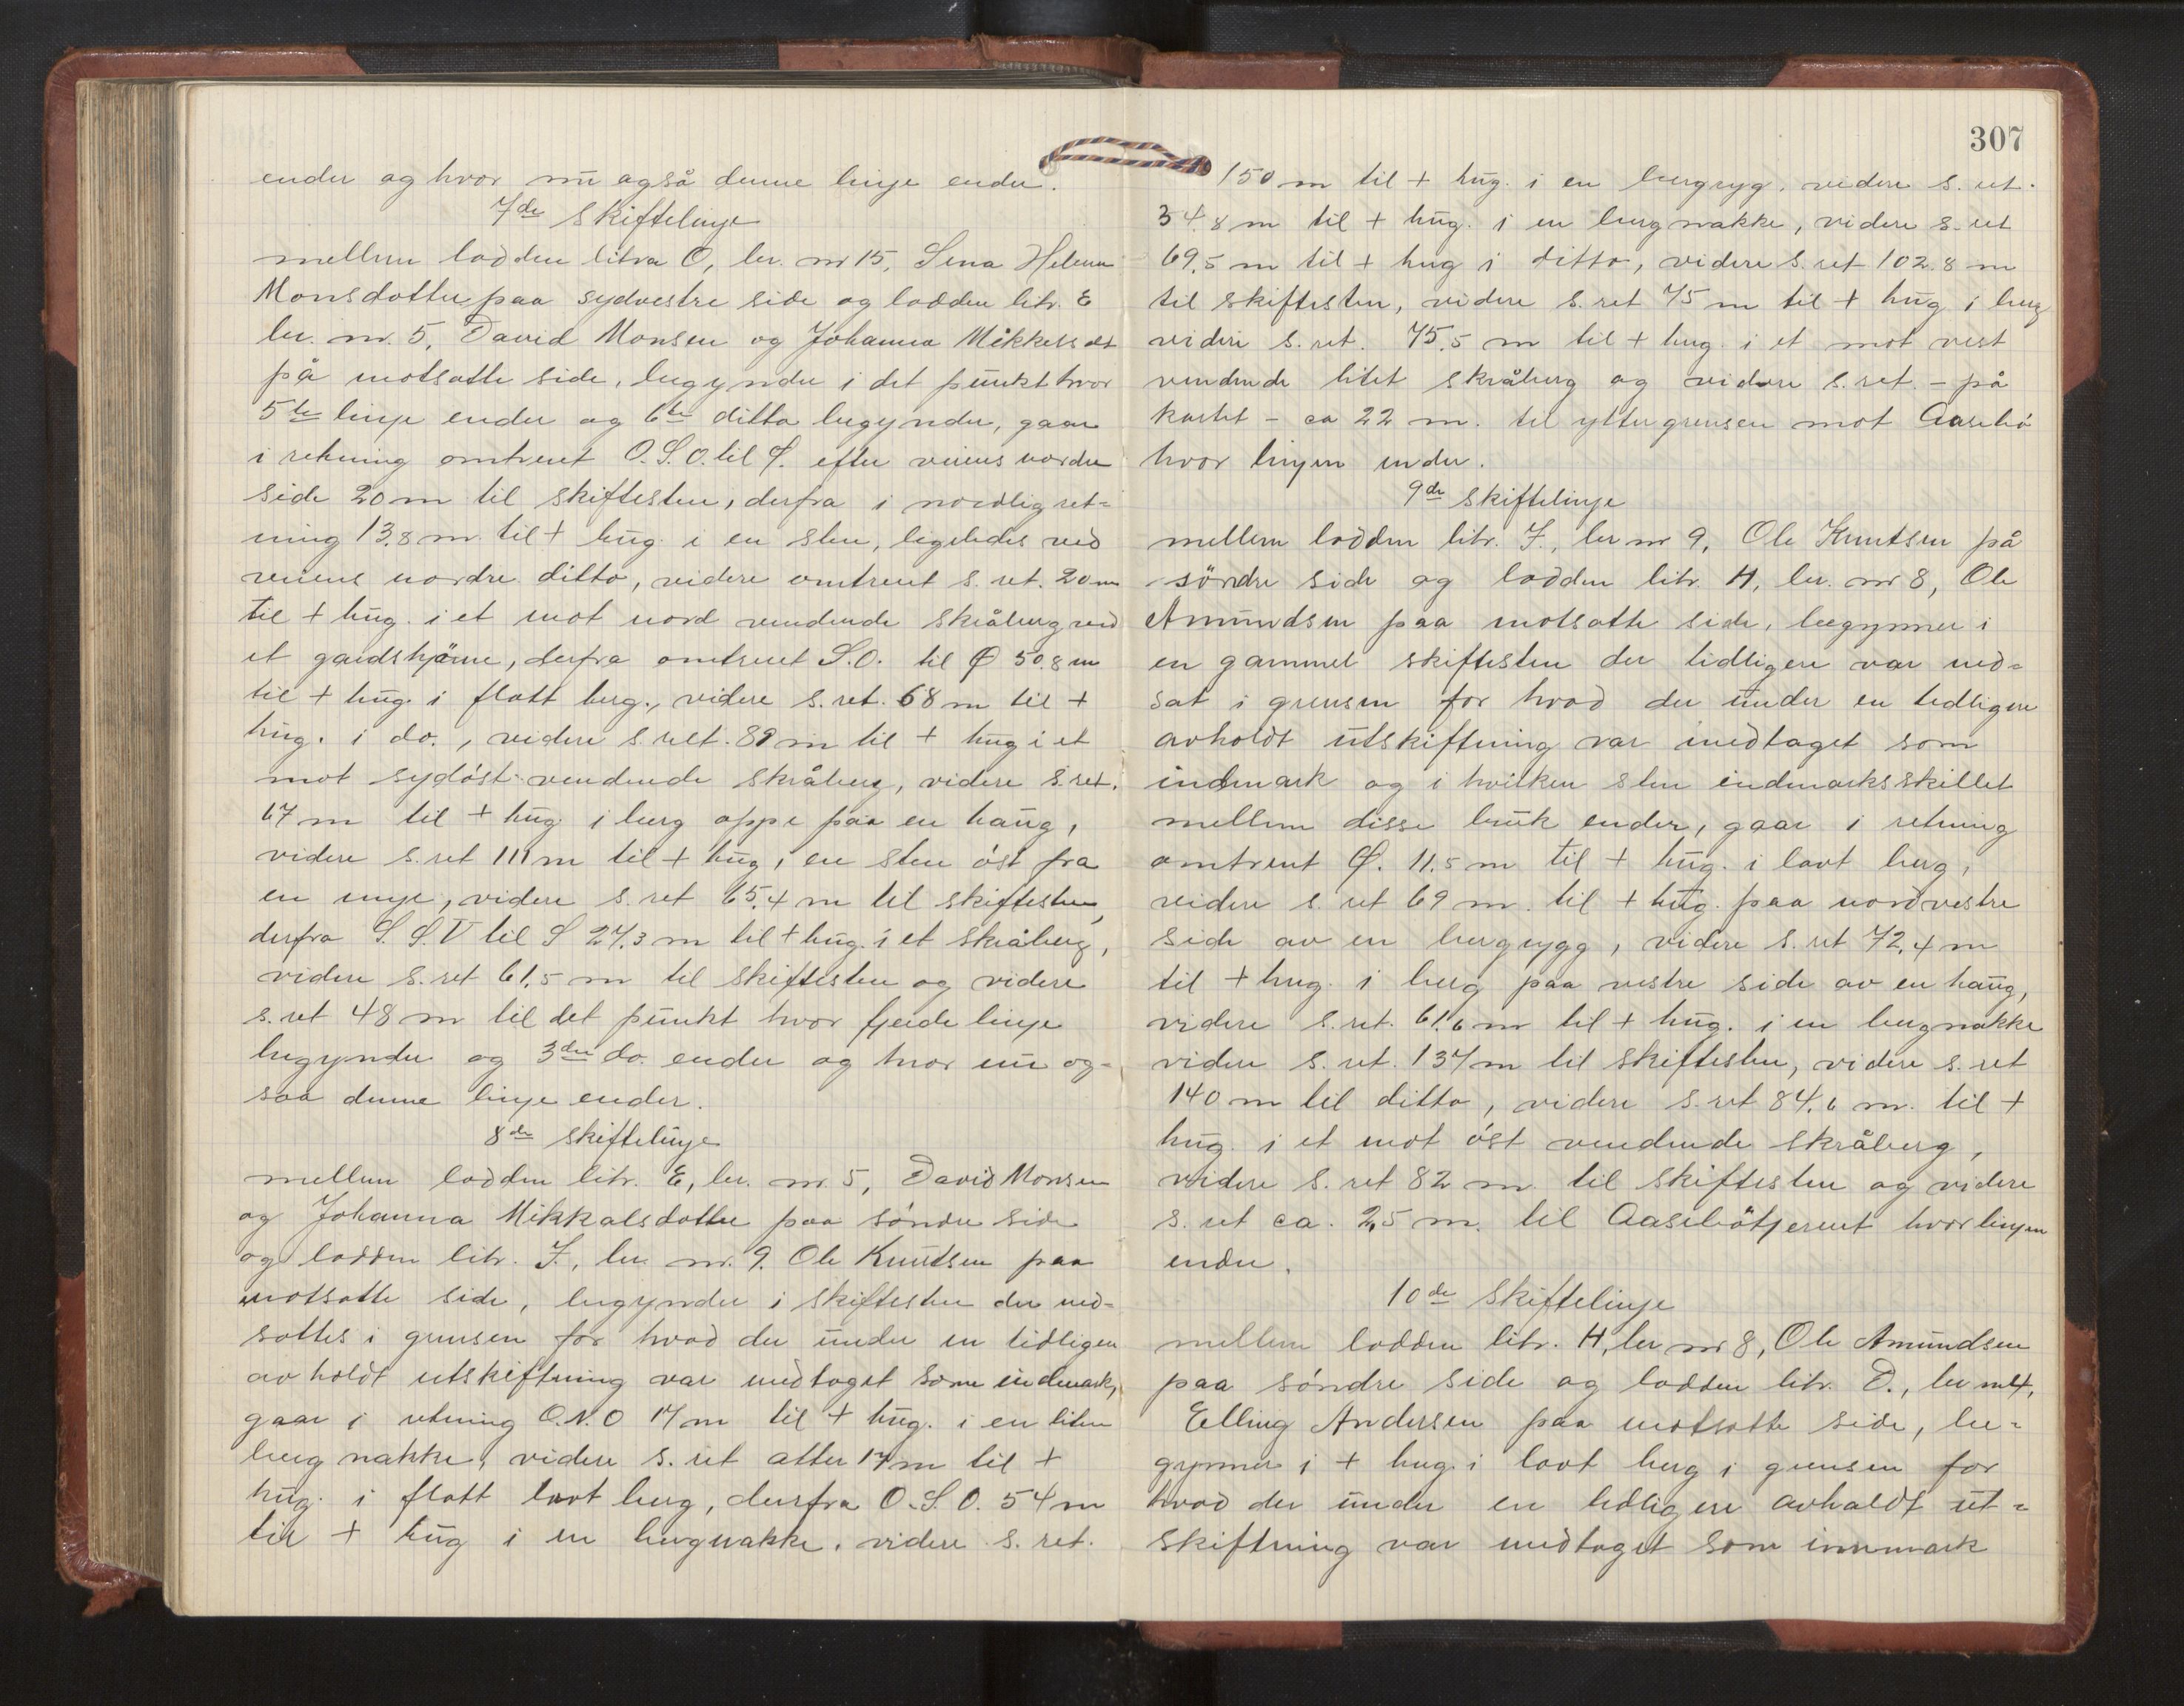 ender og hvor nu også denne linje ender.
7de skiftelinje
mellem lodden litra O, br. nr 15, Lina Helena
Monsdatter paa sydvestre side og lodden litr. E
br. nr. 5, David Monsen og Johanna Mikkelsdt
på motsatte side, begynder i det punkt hvor
5te linje ender og 6te ditto begynder, gaar
i retning omtrent O.S.O. til S. efter veiens nordre
side 20 m til skiftesten, derfra i nordlig ret-
ning 13,8 m til + hug. i en sten, ligeledes ved
veiens nordre ditto, videre omtrent s. ret. 20 m
til + hug. i et mot nord vendende skråberg ved
et gardshjörne, derfra omtrent S.O. til Ø 50,8 m
til + hug. i flatt berg, videre s. ret. 68 m til +
hug. i do., videre s. ret. 89 m til + hug i et
mot sydöst vendende skråberg, videre s. ret.
67 m til + hug i berg oppe paa en haug,
videre s. ret 111 m til + hug i en sten öst fra
en myr, videre s. ret 65,4 m til skiftesten,
derfra S.S.V til S 27,3 m til + hug. i et skråberg,
videre s. ret 61,5 m til skiftesten og videre
s. ret 48 m til det punkt hvor fjerde linje
begynder og 3die do. ender og hvor nu og-
saa denne linje ender.
8de skiftelinje
mellem lodden litr. E, br. nr. 5, David Monsen
og Johanna Mikkalsdatter paa söndre side
og lodden litr. I., br. nr. 9. Ole Knudsen paa
motsatte side, begynder i skiftesten der ned-
sattes i grensen for hvad der under en tidligere
avholdt utskiftning var medtaget som indmark,
gaar i retning O.N.O 17 m til + hug. i en liten
bergnakke, videre s. ret atter 17 m til +
hug. i flatt lavt berg, derfra O.S.O. 54 m
til + hug i en bergnakke, videre s. ret.
307
150 m til + hug. i en bergryg, videre s. ret.
34,8 m til + hug. i en bergnakke, videre s. ret
69,5 m til + hug i ditto, videre s. ret 102,8 m
til skiftesten, videre s. ret 75 m til + hug i berg
videre s. ret. 75,5 m til + hug. i et mot vest
vendende litet skråberg og videre s. ret. - på
kartet - ca 22 m. til yttergrensen mot Aasebö
hvor linjen ender.
9de skiftelinje
mellem lodden litr. I., br nr 9, Ole Knutsen på
söndre side og lodden litr. H, br. nr 8, Ole
Amundsen paa motsatte side, begynner i
en gammel skiftesten der tidligere var ned-
sat i grensen for hvad der under en tidligere
avholdt utskiftning var medtaget som
indmark og i hvilken sten indmarksskillet
mellem disse bruk ender, gaar i retning
omtrent Ø. 11,5 m til + hug. i lavt berg,
videre s. ret 69 m. til + hug. paa nordvestre
side av en bergrygg, videre s. ret 72,4 m
til + hug. i berg paa vestre side av en haug,
videre s. ret. 61,6 m til + hug. i en bergnakke
videre s. ret. 137 m til skiftesten, videre s. ret
140 m til ditto, videre s. ret 84,6 m. til +
hug. i et mot öst vendende skråberg,
videre s. ret 82 m. til skiftesten og videre
s. ret ca. 2,5 m. til Aasebötjernet hvor linjen
ender.
10de skiftelinje
mellem lodden litr. H, br nr 8, Ole Amundsen
paa söndre side og lodden litr. D., br nr 4,
Elling Andersen paa motsatte side, be-
gynner i + hug. i lavt berg i grensen for
hvad der under en tidligere avholdt ut-
skiftning var medtaget som innmark